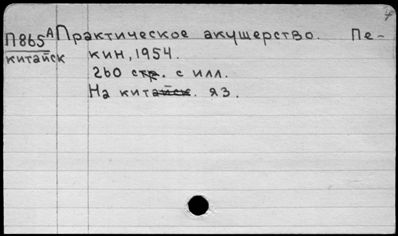 П865А Практическое акушерство. Пе-
китайск кин, 1954.
260 стр. с илл.
На китайск. яз.